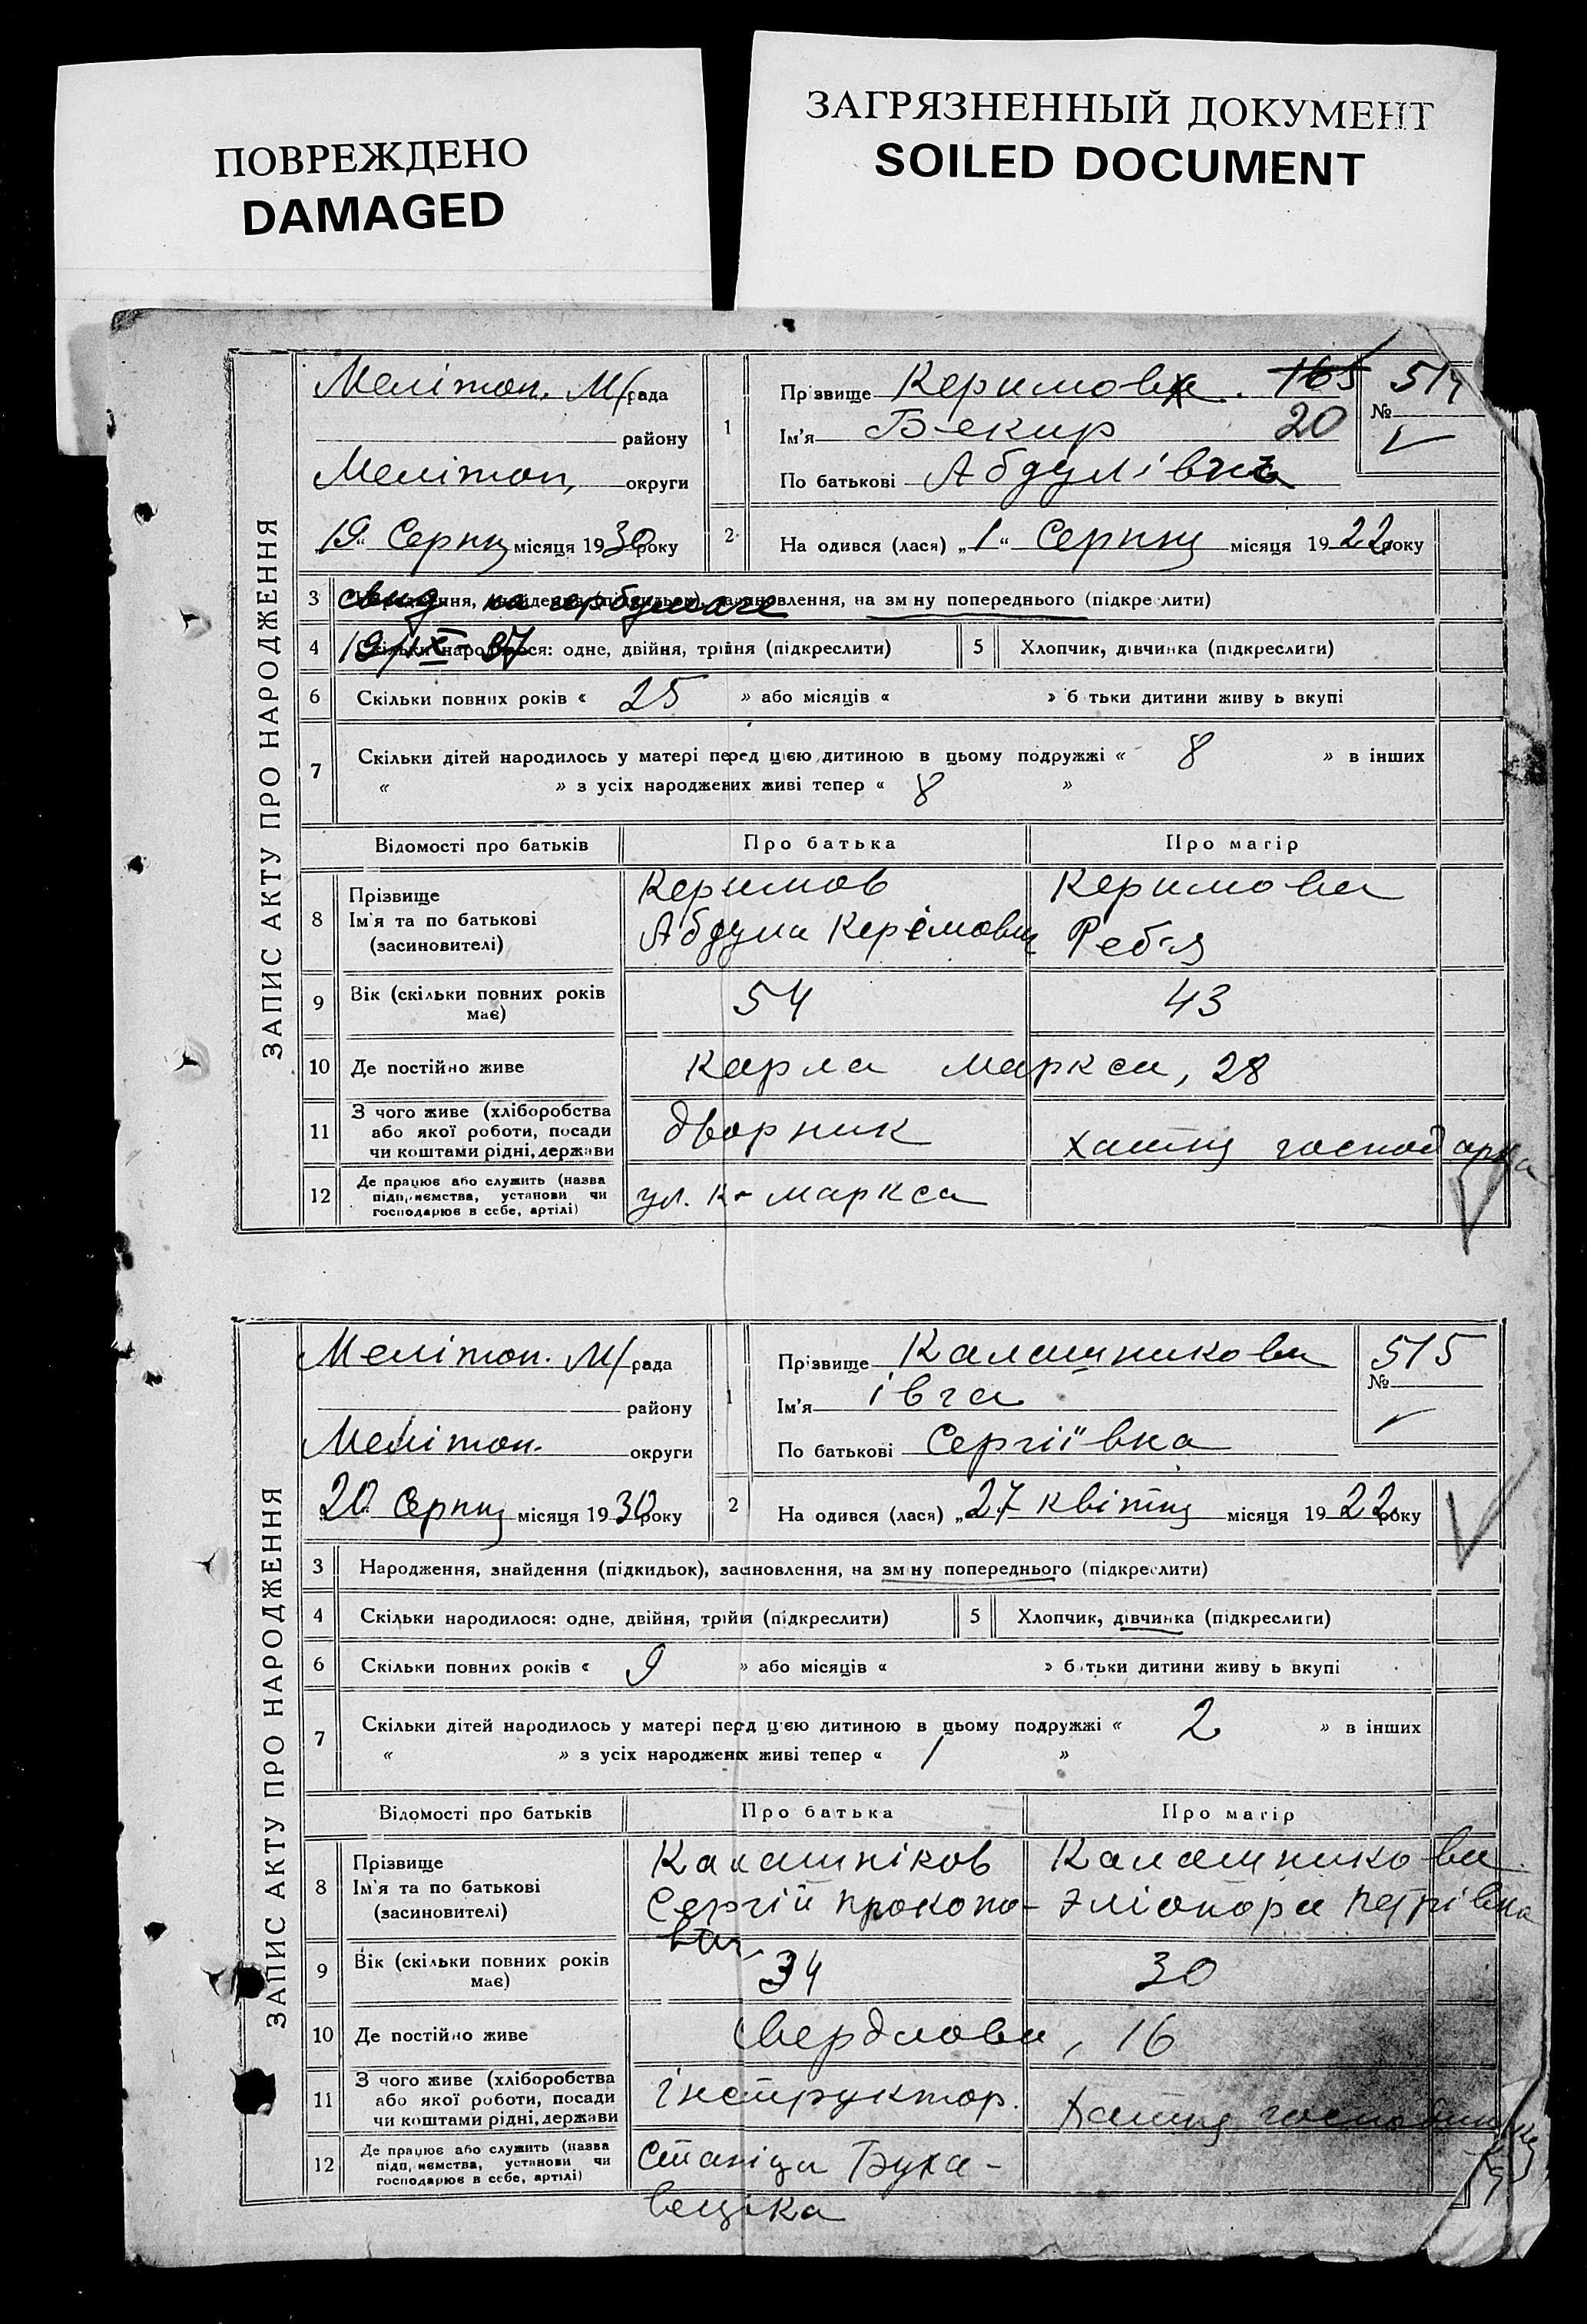 ПОВРЕЖДЕНО
DAMAGED
ЗАГРЯЗНЕННЫЙ ДОКУМЕНТ
SOILED DOCUMENT
ЗАПИС АКТУ ПРО НАРОДЖЕННЯ
Мелітоп. М/рада
району
Мелітоп. округи
19 Серпня місяця 1930 року
1
Прізвище Керимов 165
Ім'я Бекир 20
По батькові Абдулівич
№ 514
2
На одився (лася) „1“ Серпня місяця 1922 року
3 свид на гербумаге
Народження, знайдення (підкидьок), засиновлення, на зм ну попереднього (підкре лити)
4 19/IX-37
Скільки народилося: одне, двійня, трійня (підкреслити)
5 Хлопчик, дівчинка (підкреслити)
6 Скільки повних років « 25 » або місяців « » б тьки дитини живу ь вкупі
7 Скільки дітей народилось у матері перед цією дитиною в цьому подружжі « 8 » в інших
« » з усіх народжених живі тепер « 8 »
Відомості про батьків Про батька Про матір
8 Прізвище Керимов Керимова
Ім'я та по батькові Абдула Керімович Ребія
(засиновителі)
9 Вік (скільки повних років має) 54 43
10 Де постійно живе Карла Маркса, 28
11 З чого живе (хліборобства
або якої роботи, посади
чи коштами рідні, держави
дворник хатня господарка
12 Де працює або служить (назва
підп, иємства, установи чи
господарює в себе, артілі)
ул. К. Маркса
ЗАПИС АКТУ ПРО НАРОДЖЕННЯ
Мелітоп. М/рада
району
Мелітоп. округи
20 Серпня місяця 1930 року
1
Прізвище Калашникова
Ім'я Івга
По батькові Сергіївна
№ 515
2
На одився (лася) „27 квітня місяця 1922 року
3 Народження, знайдення (підкидьок), засиновлення, на зм ну попереднього (підкреслити)
4 Скільки народилося: одне, двійня, трійня (підкреслити)
5 Хлопчик, дівчинка (підкреслити)
6 Скільки повних років « 9 » або місяців « » б тьки дитини живу ь вкупі
7 Скільки дітей народилось у матері перед цією дитиною в цьому подружжі « 2 » в інших
« » з усіх народжених живі тепер « 1 »
Відомості про батьків Про батька Про матір
8 Прізвище Калашніков Калашникова
Ім'я та по батькові Сергій Прокопо- Эліонора Петрівна
(засиновителі) вич
9 Вік (скільки повних років має) 34 30
10 Де постійно живе Свердлова, 16
11 З чого живе (хліборобства
або якої роботи, посади
чи коштами рідні, держави
інструктор. Хатня
12 Де працює або служить (назва
підп, иємства, установи чи
господарює в себе, артілі)
Станіца